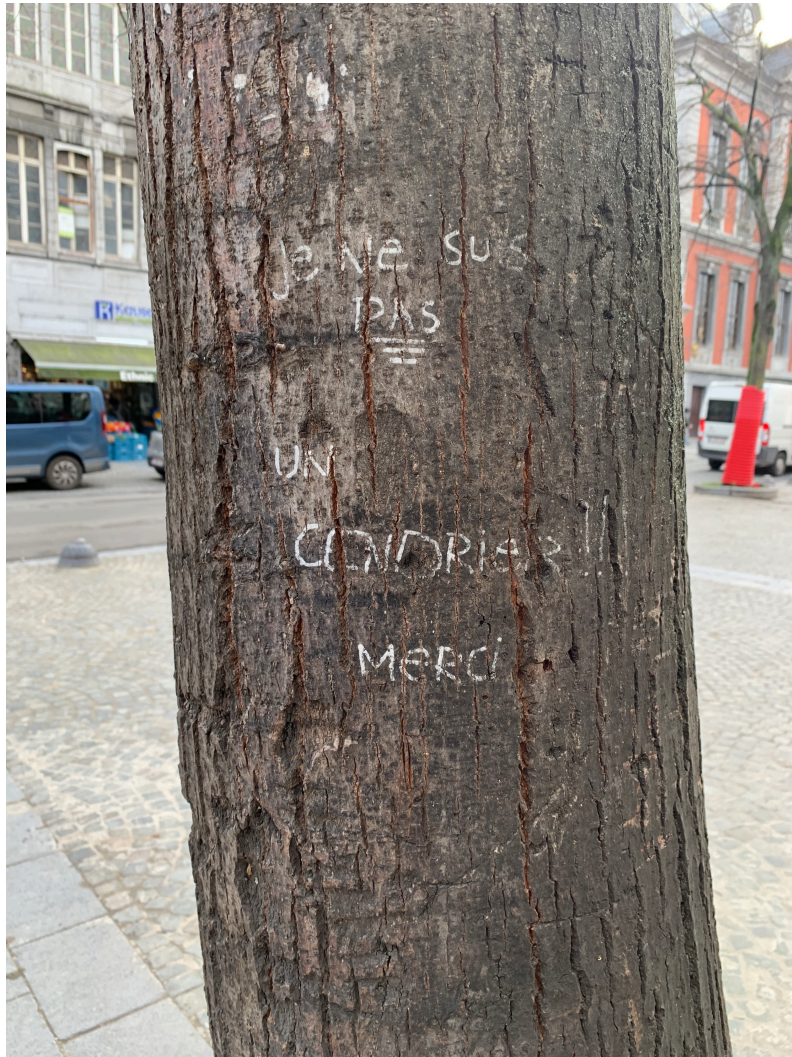 Je Ne suis
PAS
UN
CENDRIER !!
Merci